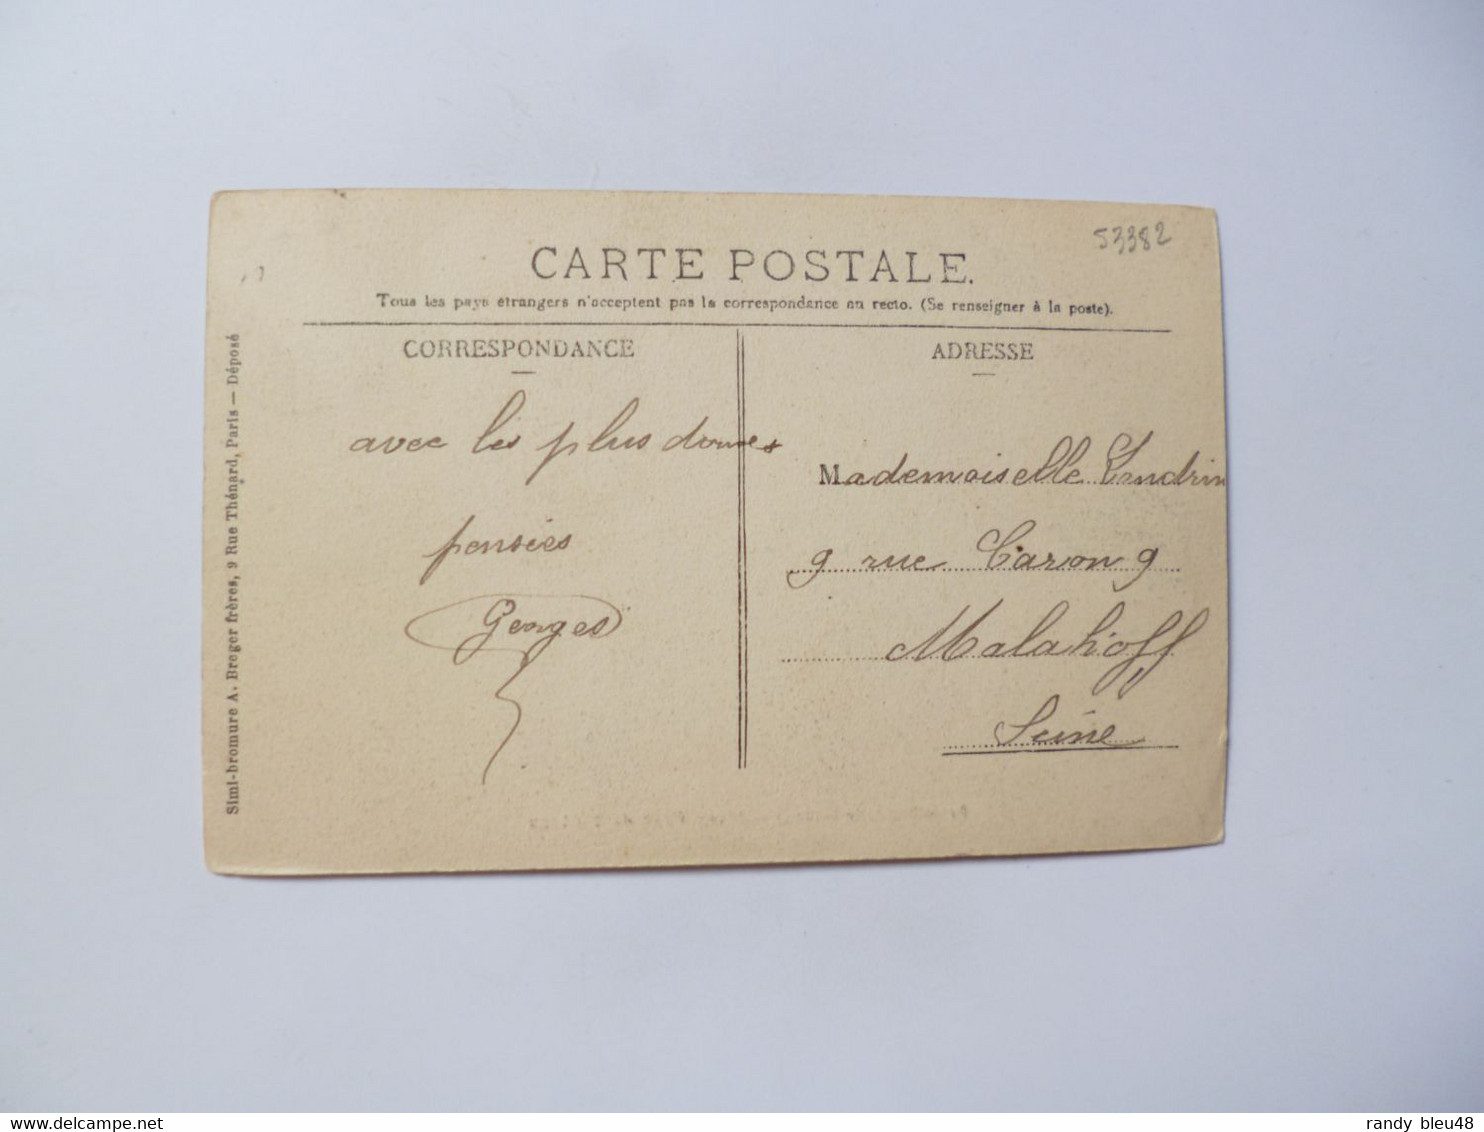 53382
CARTE POSTALE.
Tous les pays étrangers n'acceptent pas la correspondance au recto. (Se renseigner à la poste).
CORRESPONDANCE
avec les plus douces
pensées
Georges
ADRESSE
Mademoiselle
9 rue Caron 9
Malakoff
Seine
Simi-bromure A. Breger frères, 9 Rue Thénard, Paris — Déposé
delcampe.net
randy_bleu48